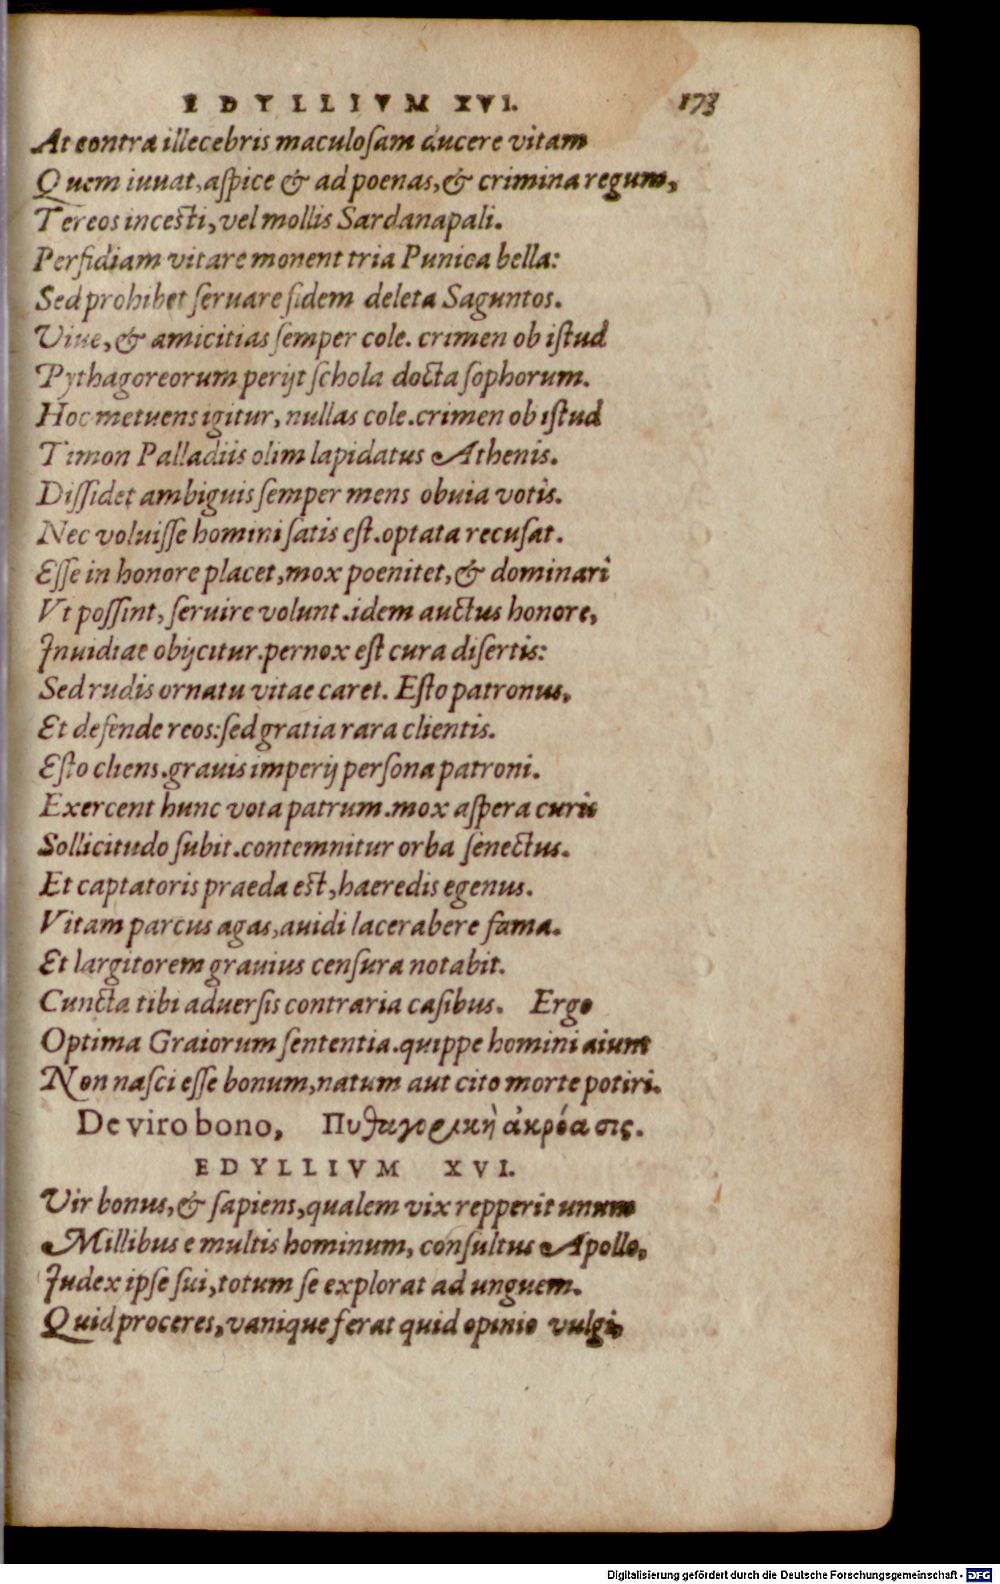 EDYLLIVM XVI. 173
At contra illecebris maculoſam ducere vitam
Quem iuuat, aſpice & ad poenas, & crimina regum,
Tereos inceſti, vel mollis Sardanapali.
Perfidiam vitare monent tria Punica bella:
Sed prohibet ſeruare fidem deleta Saguntos.
Viue, & amicitias ſemper cole. crimen ob iſtud
Pythagoreorum perijt ſchola docta ſophorum.
Hoc metuens igitur, nullas cole. crimen ob iſtud
Timon Palladiis olim lapidatus Athenis.
Diſſidet ambiguis ſemper mens obuia votis.
Nec voluiſſe homini ſatis eſt. optata recuſat.
Eſſe in honore placet, mox poenitet, & dominari
Vt poſſint, ſeruire volunt. idem auctus honore,
Inuidiae obijcitur. pernox eſt cura diſertis:
Sed rudis ornatu vitae caret. Eſto patronus,
Et defende reos: ſed gratia rara clientis.
Eſto cliens. grauis imperij perſona patroni.
Exercent hunc vota patrum. mox aſpera curis
Sollicitudo ſubit. contemnitur orba ſenectus.
Et captatoris praeda eſt, haeredis egenus.
Vitam parcus agas, auidi lacerabere fama.
Et largitorem grauius cenſura notabit.
Cuncta tibi aduerſis contraria caſibus. Ergo
Optima Graiorum ſententia. quippe homini aiunt
Non naſci eſſe bonum, natum aut cito morte potiri.
De viro bono, Πυθαγορικὴ ἀκρόασις.
EDYLLIVM XVI.
Vir bonus, & ſapiens, qualem vix repperit unum
Millibus e multis hominum, conſultus Apollo,
Iudex ipſe ſui, totum ſe explorat ad unguem.
Quid proceres, vanique ferat quid opinio vulgi,
Digitalisierung gefördert durch die Deutsche Forschungsgemeinschaft - DFG